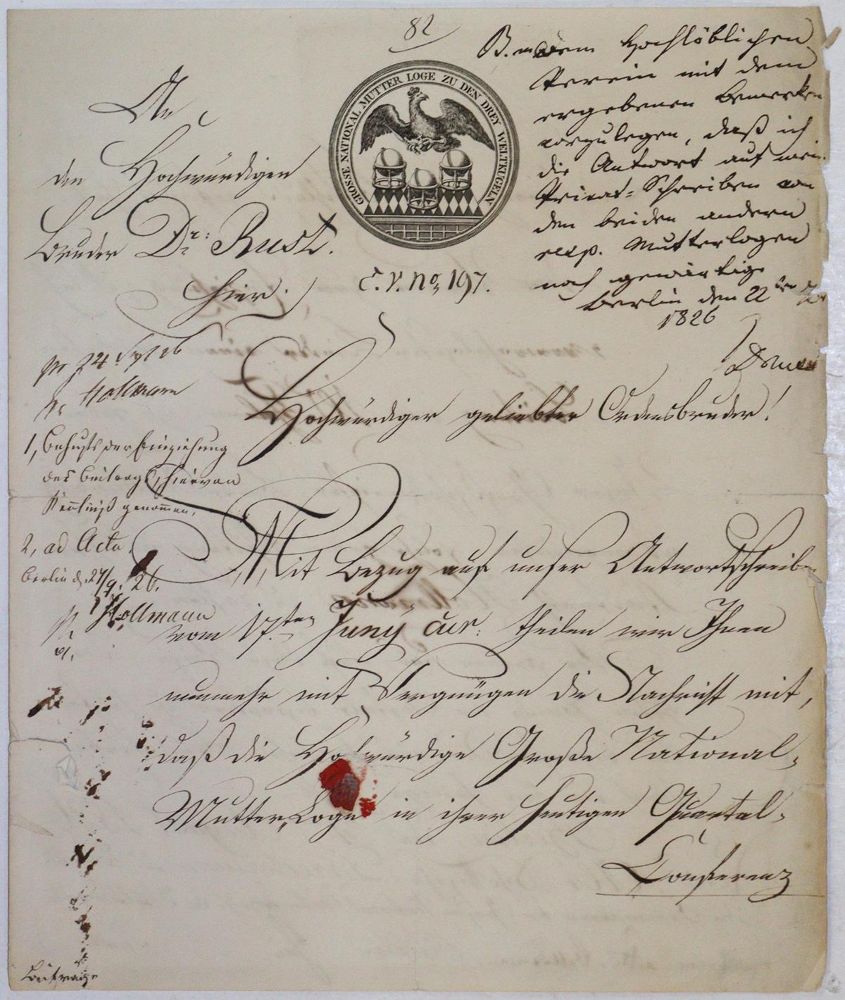 82
An
den Hochwürdigen
Bruder Dr: Rust.
hier.
GROSSE NATIONAL-MUTTER LOGE ZU DEN DREY WELTKUGELN
C. V. No, 197.
dem Hochlöblichen
Verein mit dem
ergebenen Bemerken
vorzulegen, daß ich
die Antwort auf mein
Privat-Schreiben von
den beiden andern
resp. Mutterlogen
noch gewärtige
Berlin den 22
1826
pr 24 Sept 26
Hollmann
1, Behufs der Einziehung
des Beitrags hiervon
Kenntniß genommen.
2, ad Acta
Berlin d. 27/9. 26.
Hollmann
Hochwürdiger geliebter Ordensbruder!
Mit Bezug auf unser Antwortschreiben
vom 17ten Juny cur: theilen wir Ihnen
nunmehr mit Vergnügen die Nachricht mit,
daß die Hochwürdige Große National-
Mutter-Loge in ihrer heutigen Quartal-
Conferenz